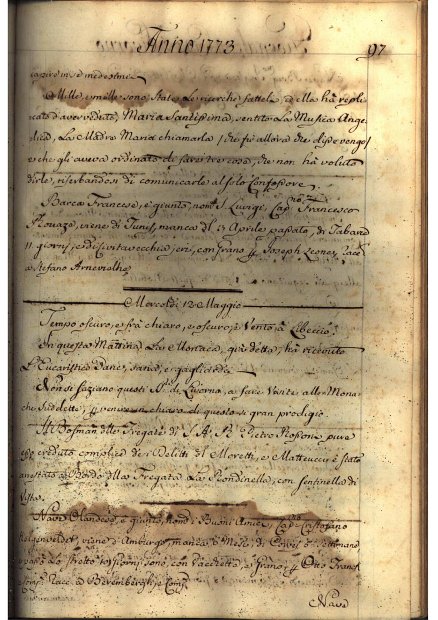 Anno 1773
97
capire in se medesime.
Mille, e mille sono State Le ricerche fattele, ed ella hà repli
cato d'aver veduto Maria Santissima, sentito La Musica Ange
lica, La Madre Maria chiamarla / che fù allora che disse vengo /
e che gli aveva ordinato di fare tre cose, che non hà voluto
dirle, riserbandosi di comunicarle al solo Confessore.
Barca Francese, è giunta, nom. S. Luvigi, Cap.no Francesco
viene di Tunis, manca dl 13 Aprile passato, di Tabarca
11 giorni, e di Civitavecchia jeri, con grano, p Joseph Leones, Racc.
a Stefano
Mercoldì 12 Maggio
Tempo oscuro, e frà chiaro, e oscuro, Vento à Libeccio.
In questa Mattina La Monaca, già detta, hà ricevuto
L'Eucaristico Pane, sana, e gagliarda.
Non si saziano questi SS.ri di Livorno, a fare Visite alle Mona
che suddette, p venire in chiaro di questo si gran prodigio.
Il Bosman delle Fregate di S. A. R. Pietro pure
creduto complice di i Delitti del Moretti, e Matteucci, è stato
arrestato a Bordo della Fregata La Rondinella, con sentinella di
Vista.
Nave Olandese, è giunta, nom. i Buoni Amici, Cap.no Cristofano
viene d'Amburgo, manca 2 Mesi, di
e passò Lo stretto giorni sono, con Vacchetta, e grano, p Otto Frank
Comp. Racc. a Comp.
Nave